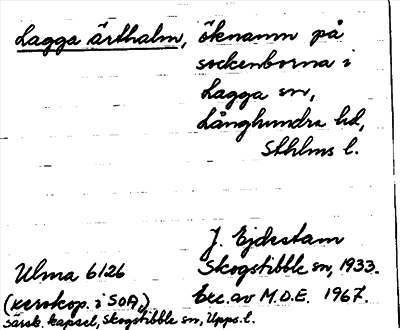 Lagga ärthalm, öknamn på
sockenborna i
Lagga sn,
Långhundra hd,
Sthlms l.
J. Ejdestam
Ulma 6126
Skogstibble sn, 1933.
(xerokop. i SOA,)
Exc. av M.D.E. 1967.
särsk. kapsel, Skogstibble sn, Upps. l.